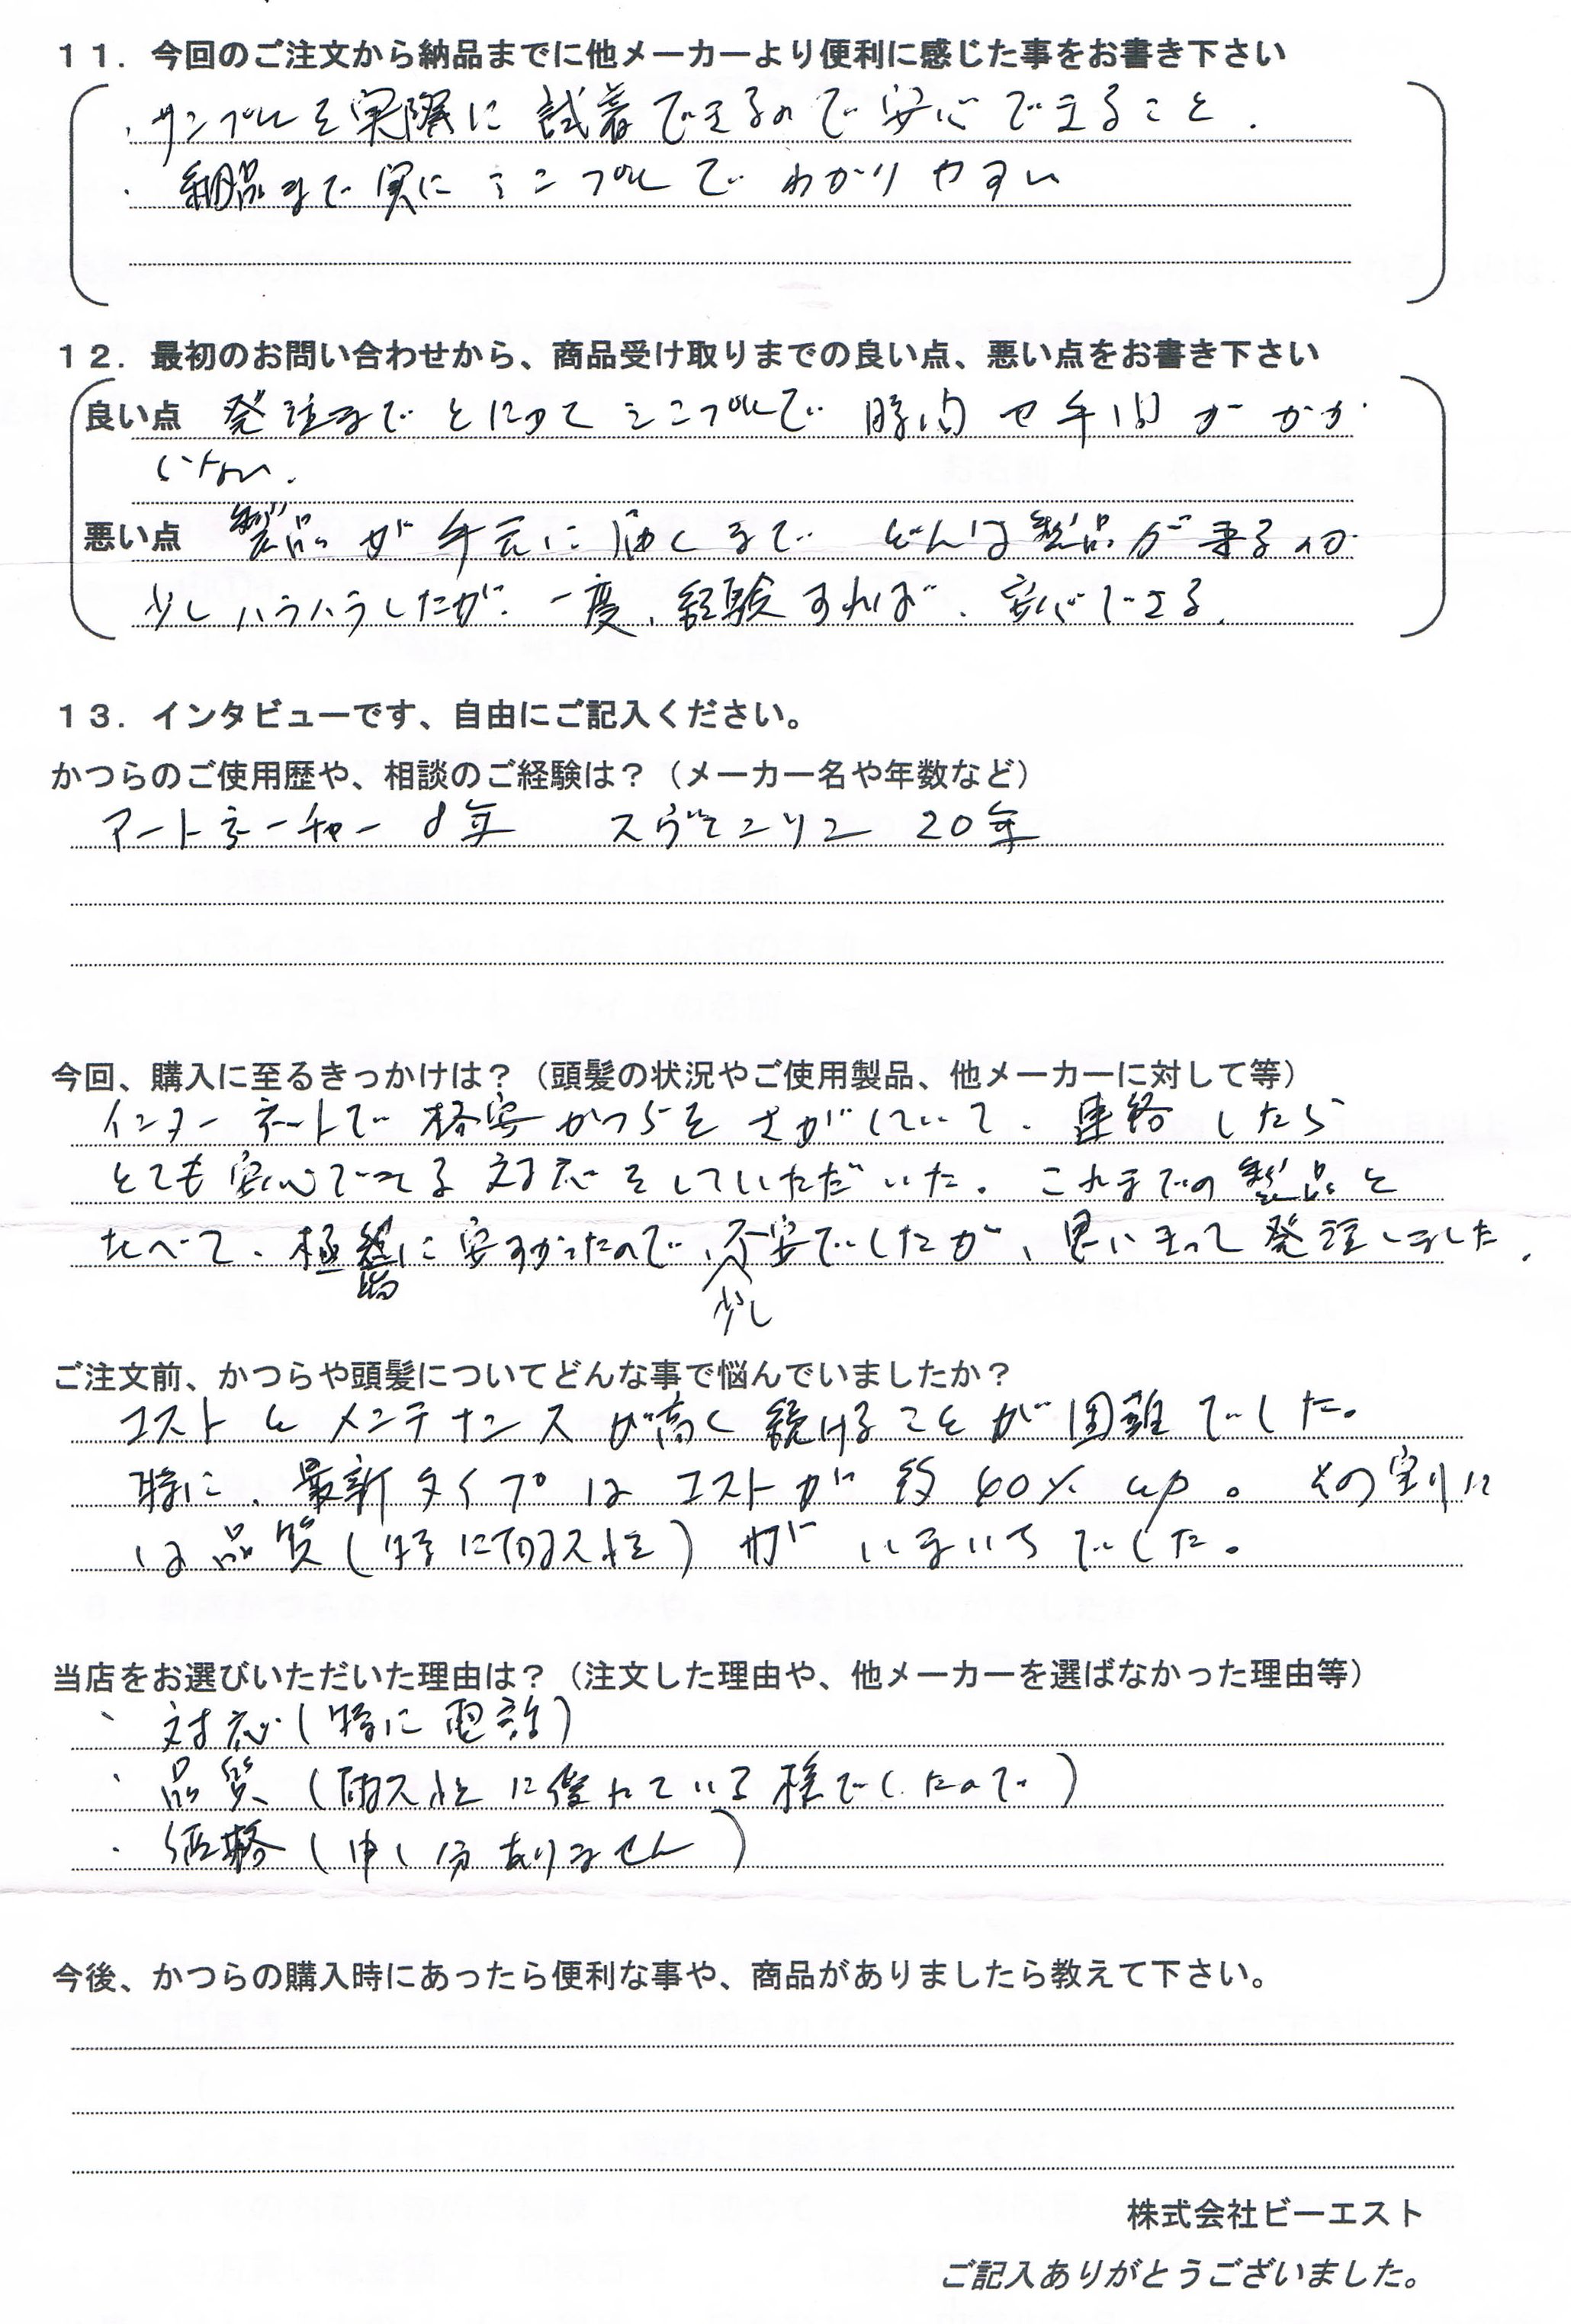 11．今回のご注文から納品までに他メーカーより便利に感じた事をお書き下さい
・サンプルを実際に試着できるので安心できること．
・納品まで実にシンプルでわかりやすい
12．最初のお問い合わせから、商品受け取りまでの良い点、悪い点をお書き下さい
良い点 発注までとにかくシンプルで時間や手間がかか
らない．
悪い点 製品が手元に届くまでどんな製品が来るのか
少しハラハラしたが、一度、経験すれば、安心できる．
13．インタビューです、自由にご記入ください。
かつらのご使用歴や、相談のご経験は？（メーカー名や年数など）
アートネーチャー 8年 スヴェンソン 20年
今回、購入に至るきっかけは？（頭髪の状況やご使用製品、他メーカーに対して等）
インターネットで格安かつらをさがしていて、連絡したら
とても安心できる対応をしていただいた。これまでの製品と
たべて、極端に安すかったので、少し不安でしたが、思いきって発注しました．
ご注文前、かつらや頭髪についてどんな事で悩んでいましたか？
コストとメンテナンスが高く続けることが困難でした。
特に、最新タイプはコストが約40％up。その割に
は品質（特に耐久性）がいまいちでした。
当店をお選びいただいた理由は？（注文した理由や、他メーカーを選ばなかった理由等）
・対応（特に電話）
・品質（耐久性に優れている様でしたので）
・価格（申し分ありません）
今後、かつらの購入時にあったら便利な事や、商品がありましたら教えて下さい。
株式会社ビーエスト
ご記入ありがとうございました。